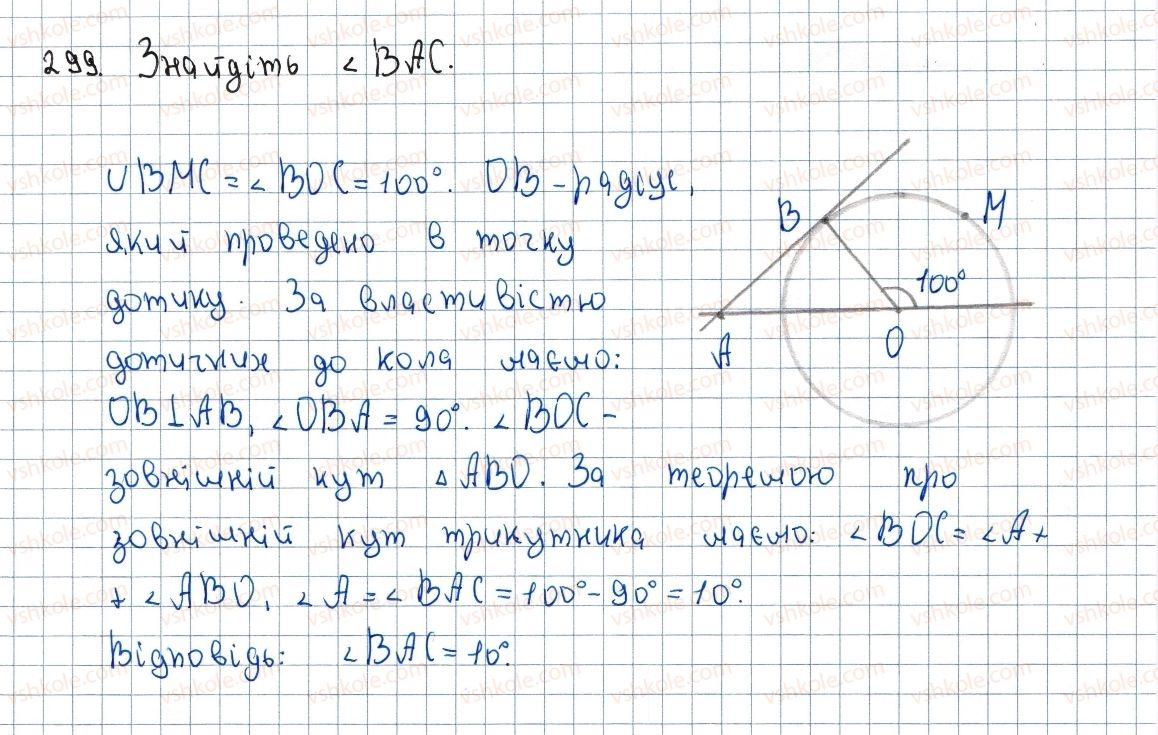 299. Знайдіть ∠BAC.
∪BMC = ∠BOC = 100°. OB – радіус,
який проведено в точку
дотику. За властивістю
дотичних до кола маємо:
OB⊥AB, ∠OBA = 90°. ∠BOC –
зовнішній кут △ABO. За теоремою про
зовнішній кут трикутника маємо: ∠BOC = ∠A +
+ ∠ABO, ∠A = ∠BAC = 100° – 90° = 10°.
Відповідь: ∠BAC = 10°.
B
M
100°
A
O
vshkole.com